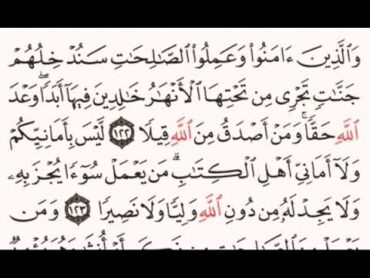 وَٱلَّذِينَ ءَامَنُوا۟ وَعَمِلُوا۟ ٱلصَّـٰلِحَـٰتِ سَنُدْخِلُهُمْ
جَنَّـٰتٍ تَجْرِى مِن تَحْتِهَا ٱلْأَنْهَـٰرُ خَـٰلِدِينَ فِيهَآ أَبَدًا ۖ وَعْدَ
ٱللَّهِ حَقًّا ۚ وَمَنْ أَصْدَقُ مِنَ ٱللَّهِ قِيلًا ١٢٢ لَّيْسَ بِأَمَانِيِّكُمْ
وَلَآ أَمَانِىِّ أَهْلِ ٱلْكِتَـٰبِ ۗ مَن يَعْمَلْ سُوٓءًا يُجْزَ بِهِۦ
وَلَا يَجِدْ لَهُۥ مِن دُونِ ٱللَّهِ وَلِيًّا وَلَا نَصِيرًا ١٢٣ وَمَن